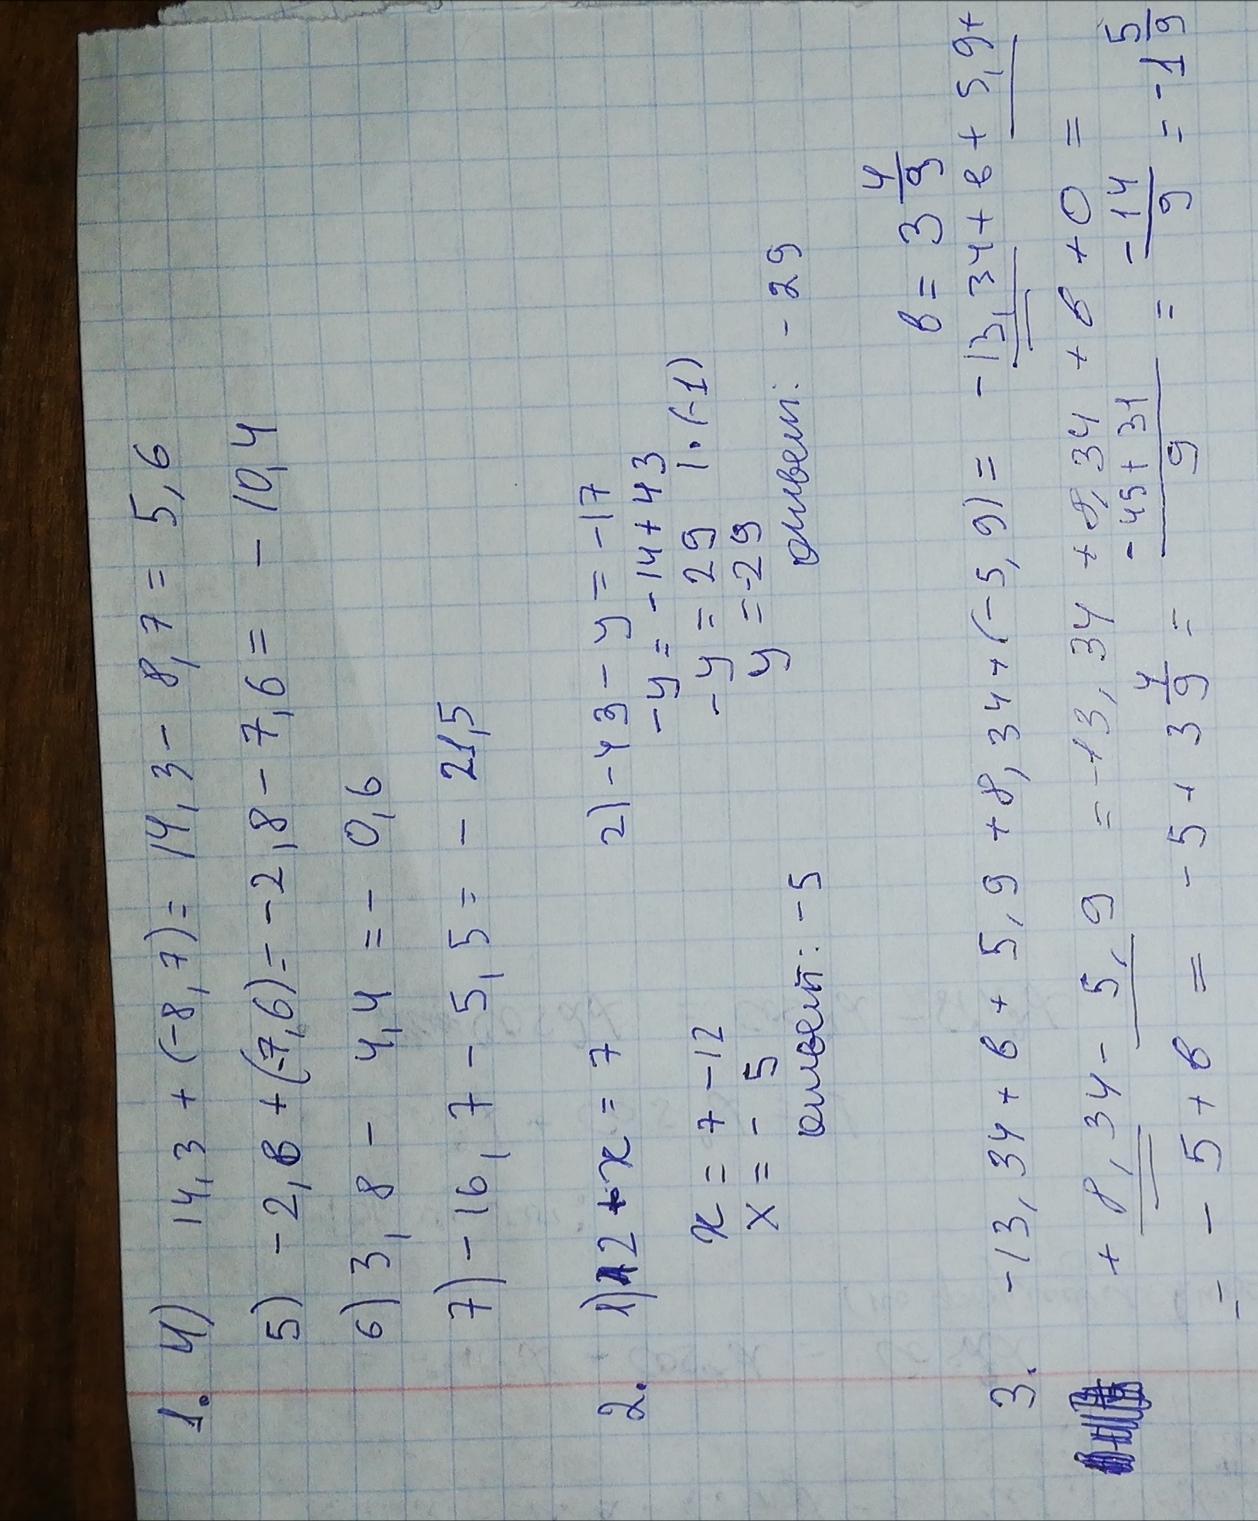 1. 4) 14,3 + (-8,7) = 14,3 - 8,7 = 5,6
5) -2,8 + (-7,6) = -2,8 - 7,6 = -10,4
6) 3,8 - 4,4 = -0,6
7) -16,7 - 5,5 = -21,5
2. 1) 12 + x = 7
x = 7 - 12
x = -5
ответ: -5
2) -43 - y = -17
-y = -14 + 43
-y = 29 | · (-1)
y = -29
ответ: -29
b = 3 4/9
3. -13,34 + b + 5,9 + 8,34 + (-5,9) = -13,34 + b + 5,9 +
+ 8,34 - 5,9 = -13,34 + 8,34 + b + 0 =
= -5 + b = -5 + 3 4/9 = (-45 + 31)/9 = -14/9 = -1 5/9